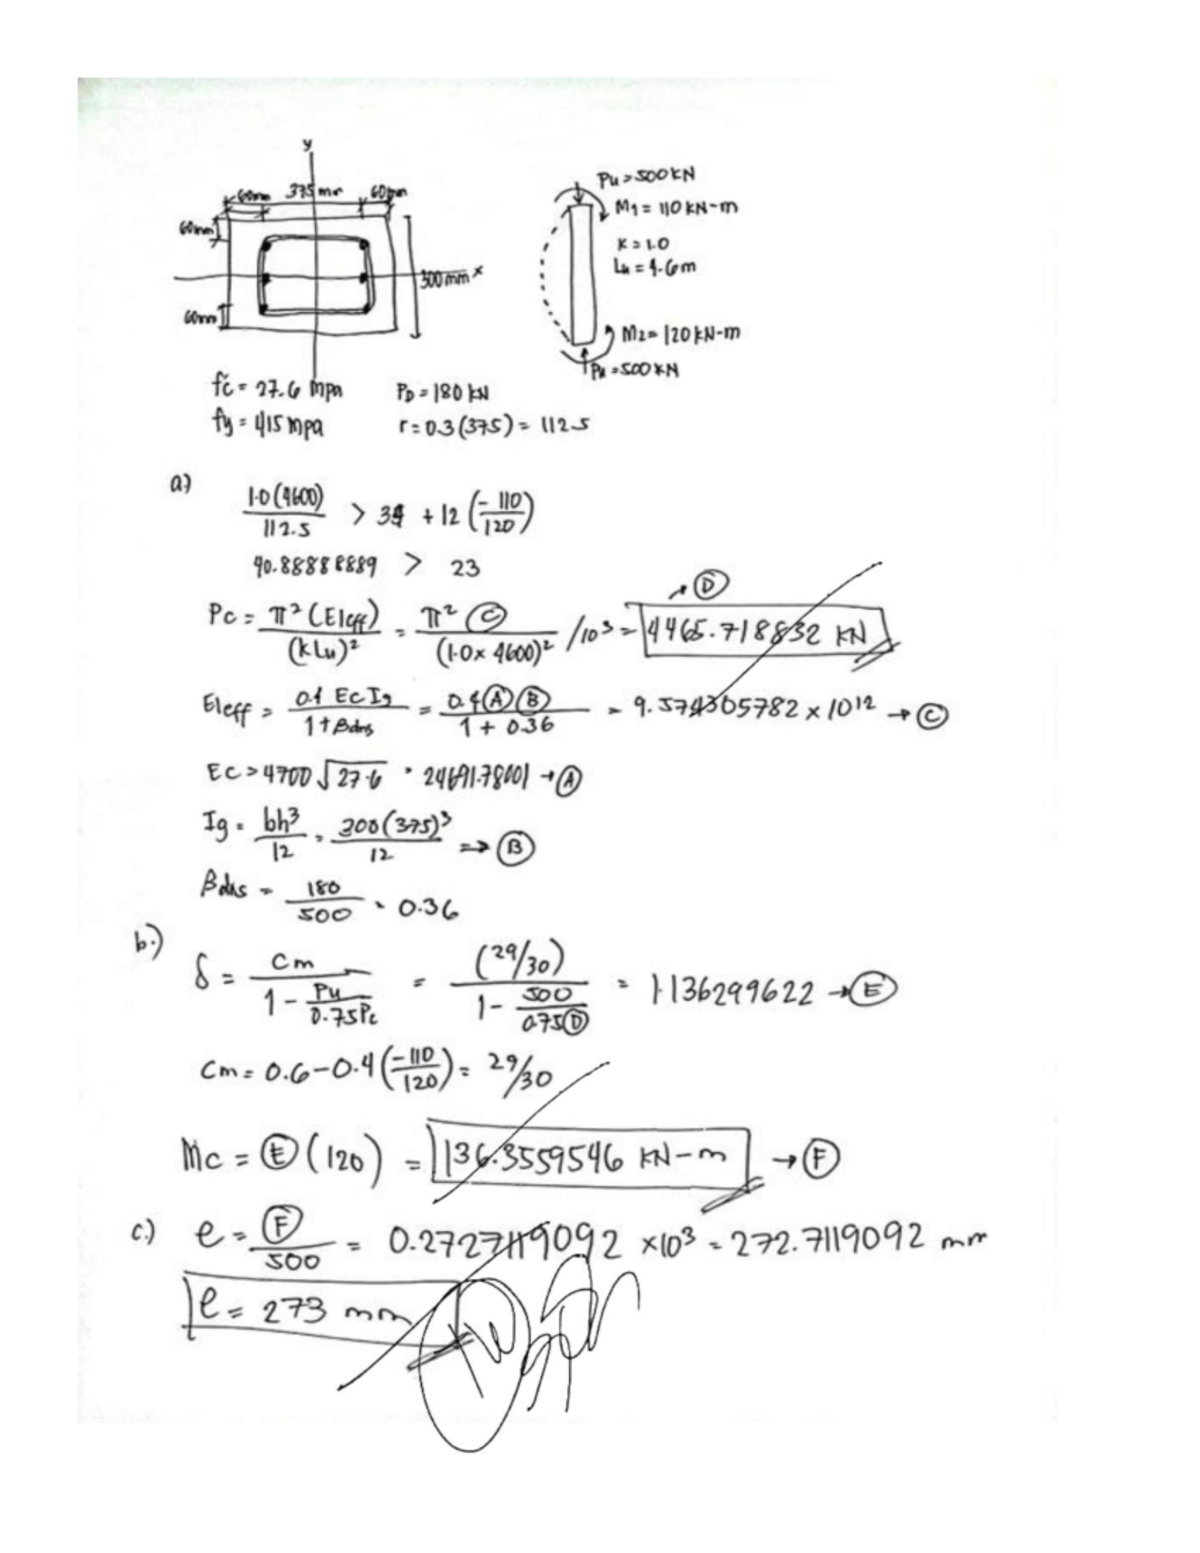 y
60mm 375 mm 60mm
60mm
300 mm x
60mm
Pu = 500 KN
M1 = 110 KN-m
K = 1.0
Lu = 4.6m
M2 = 120 KN-m
Pu = 500 KN
f'c = 27.6 mpa PD = 180 KN
fy = 415 mpa r = 0.3(375) = 112.5
a) 1.0(4600)/112.5 > 34 + 12(-110/120)
40.88888889 > 23
→ D
Pc = π²(EIeff)/(kLu)² = π² C/(1.0 x 4600)² /10³ = 4465.718832 KN
EIeff = 0.4 EcIg/1+βdns = 0.4 A B/1 + 0.36 = 9.574305782 x 10¹² → C
Ec = 4700 √27.6 = 24691.78001 → A
Ig = bh³/12 = 300(375)³/12 → B
βdns = 180/500 = 0.36
b.) δ = Cm/1 - Pu/0.75Pc = (29/30)/1 - 500/0.75 D = 1.136299622 → E
Cm = 0.6 - 0.4(-110/120) = 29/30
Mc = E (120) = 136.3559546 KN-m → F
c.) e = F/500 = 0.2727119092 x10³ = 272.7119092 mm
e = 273 mm